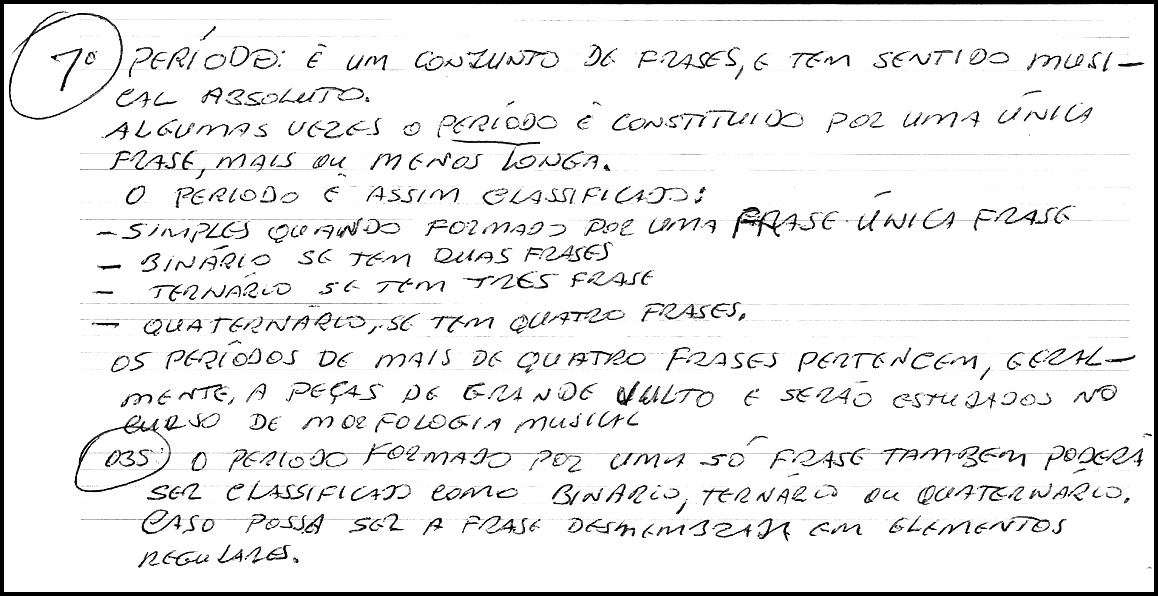 7º PERÍODO: É UM CONJUNTO DE FRASES, E TEM SENTIDO MUSI-
CAL ABSOLUTO.
ALGUMAS VEZES O PERÍODO É CONSTITUIDO POR UMA ÚNICA
FRASE, MAIS OU MENOS LONGA.
O PERIODO É ASSIM CLASSIFICADO:
- SIMPLES QUANDO FORMADO POR UMA FRASE ÚNICA FRASE
- BINÁRIO SE TEM DUAS FRASES
- TERNÁRIO SE TEM TRES FRASE
- QUATERNÁRIO, SE TEM QUATRO FRASES.
OS PERÍODOS DE MAIS DE QUATRO FRASES PERTENCEM, GERAL-
MENTE, A PEÇAS DE GRANDE VULTO E SERÃO ESTUDADOS NO
CURSO DE MORFOLOGIA MUSICAL
OBS: O PERIODO FORMADO POR UMA SÓ FRASE TAMBEM PODERÁ
SER CLASSIFICADO COMO BINÁRIO, TERNÁRIO OU QUATERNÁRIO.
CASO POSSA SER A FRASE DESMEMBRADA EM ELEMENTOS
REGULARES.